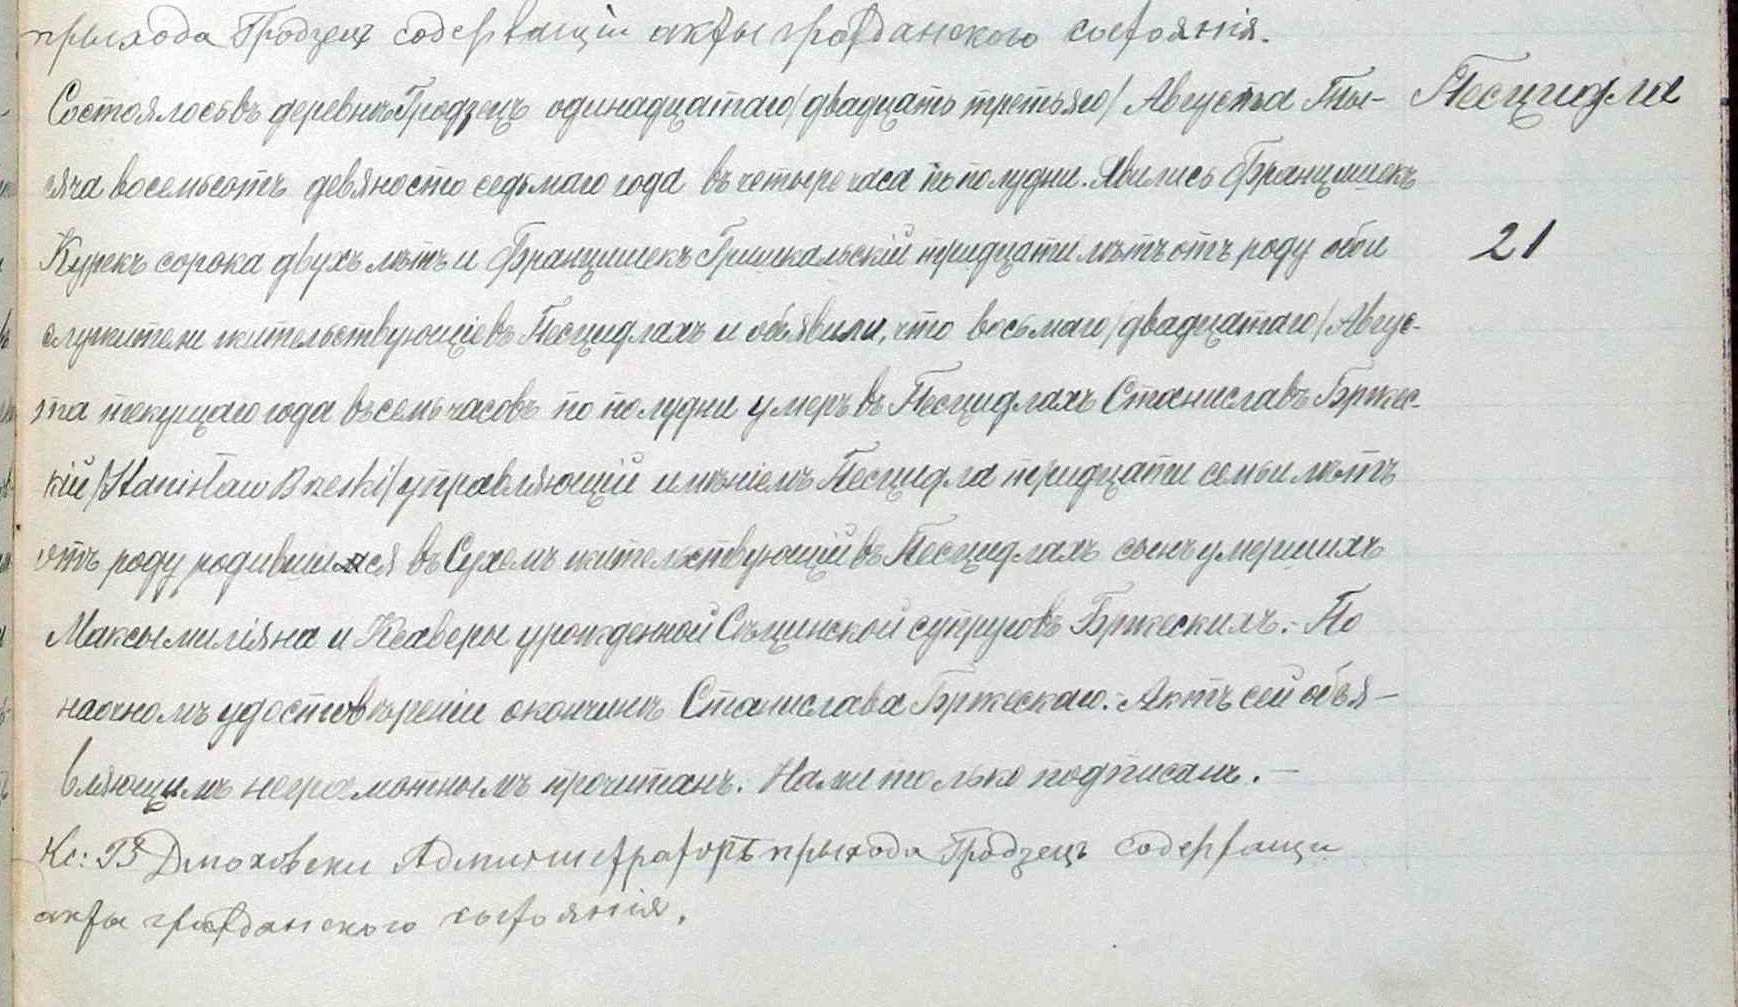 прыхода Гродзец содержащiй акты гражданского состоянiя.
Состоялось въ деревнѣ Гродзецъ одинадцатаго /двадцать третьяго/ Августа Ты-
Песцидла
сяча восемьсотъ девяносто седьмаго года въ четыре часа по полудни. Явились Францишекъ
Курекъ сорока двухъ лѣтъ и Францишекъ тридцати лѣтъ отъ роду обои
21
служители жительствующiе въ Песцидлахъ и объявили, что восьмаго /двадцатаго/ Авгус-
та текущаго года въ семь часовъ по полудни умеръ въ Песцидлахъ Станиславъ Бржес-
кiй /Stanisław Brzeski/ управляющiй имѣнiемъ Песцидла тридцати семи лѣтъ
отъ роду родившiйся въ Сухемъ жительствующiй въ Песцидлахъ сынъ умершихъ
Максымилiяна и Ксаверы урожденной супруговъ Бржескихъ.- По
наочномъ удостовѣренiи кончины Станислава Бржескаго.- Актъ сей объя-
вляющимъ неграмотнымъ прочитанъ. Нами только подписанъ.-
Кс: В Дмоховски Администраторъ прыхода Гродзецъ содержащи
акты гражданского состоянiя.